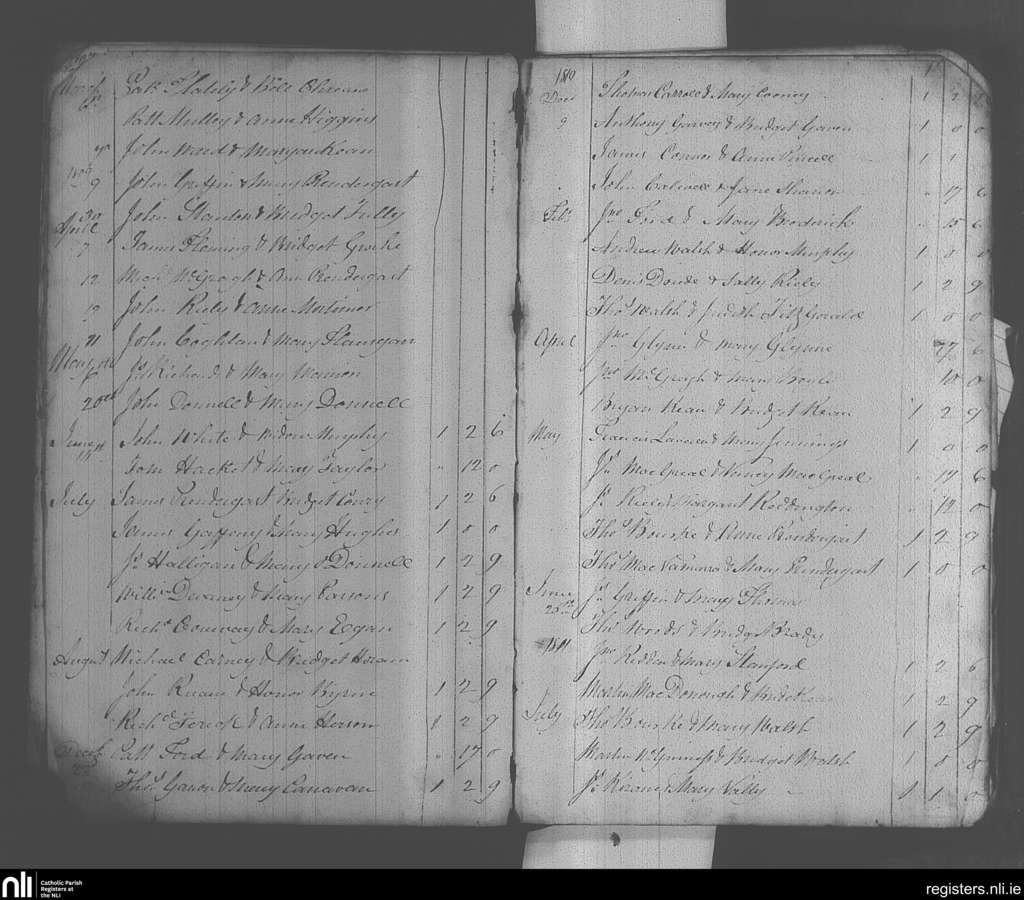 March
Patt Flatily & Bell
Patt Mulloy & Anne Higgins
John Ward & Mary Kean
9 John Griffin & Mary Prendergast
30 John Standen & Bridget Tully
April
7 James Fleming & Bridget
12 McGragh & Ann Prendergast
12 John Riely & Anne
21 John Coghlan & Mary Flanigan
May
6 Js Richards & Mary Mannon
20 John Donnell & Mary Donnell
June John White & Widow Murphy 1 2 6
Tom Hacket & Mary Taylor " 12 0
July James Prendergast Bridget Conry 1 2 6
James Gaffeny & Mary Hughes 1 0 0
Js Halligan & Mary O Donnell 1 2 9
Willm Devaney & Mary Parsons 1 2 9
Richd Conway & Mary Egan 1 2 9
August Michael Carney & Bridget Horam
John Ruane & Honor Byrne 1 2 9
Richd & Anne 1 2 9
Patt Ford & Mary Gaven " 17 0
Thos Ganon & Mary Canavan 1 2 9
1810
Thomas Carroll & Mary Cooney 1 2
9 Anthony Garvey & Bridget Gaven 1 0 0
James Connor & Anne 1 1
John & Jane Shanon " 17 6
Feb Jno Ford & Mary Broderick " 15 6
Andrew Walsh & Honor Murphy 1 0 0
Denis Doude & Sally Riely 1 2 9
Thos Walsh & Judith FitzGerald 1 0 0
April Jno Glynn & Mary Glynne 6
Jno McGragh & Mary 10 0
Bryan Kean & Bridget Kean 1 2 9
May Francis & Mary Jennings 1 0 0
Js MacGreal & MacGreal " 17 6
Js Riely & Margaret Reddington " 12 0
Thos Bourke & Anne Prendergast 1 2 9
Thos MacNamara & Mary Prendergast 1 0 0
June Js Griffin & Mary Thomas
Thos Woods & Bridget Brady
1811 Jno Redden & Mary Stanford 1 2 6
Martin MacDonough & 1 2 9
July Thos Bourke & Mary Walsh 1 2 9
Martin McGinness & Bridget Walsh 1 0 0
Js & Mary 1 1 0
nli
Catholic Parish
Registers at
the NLI
registers.nli.ie